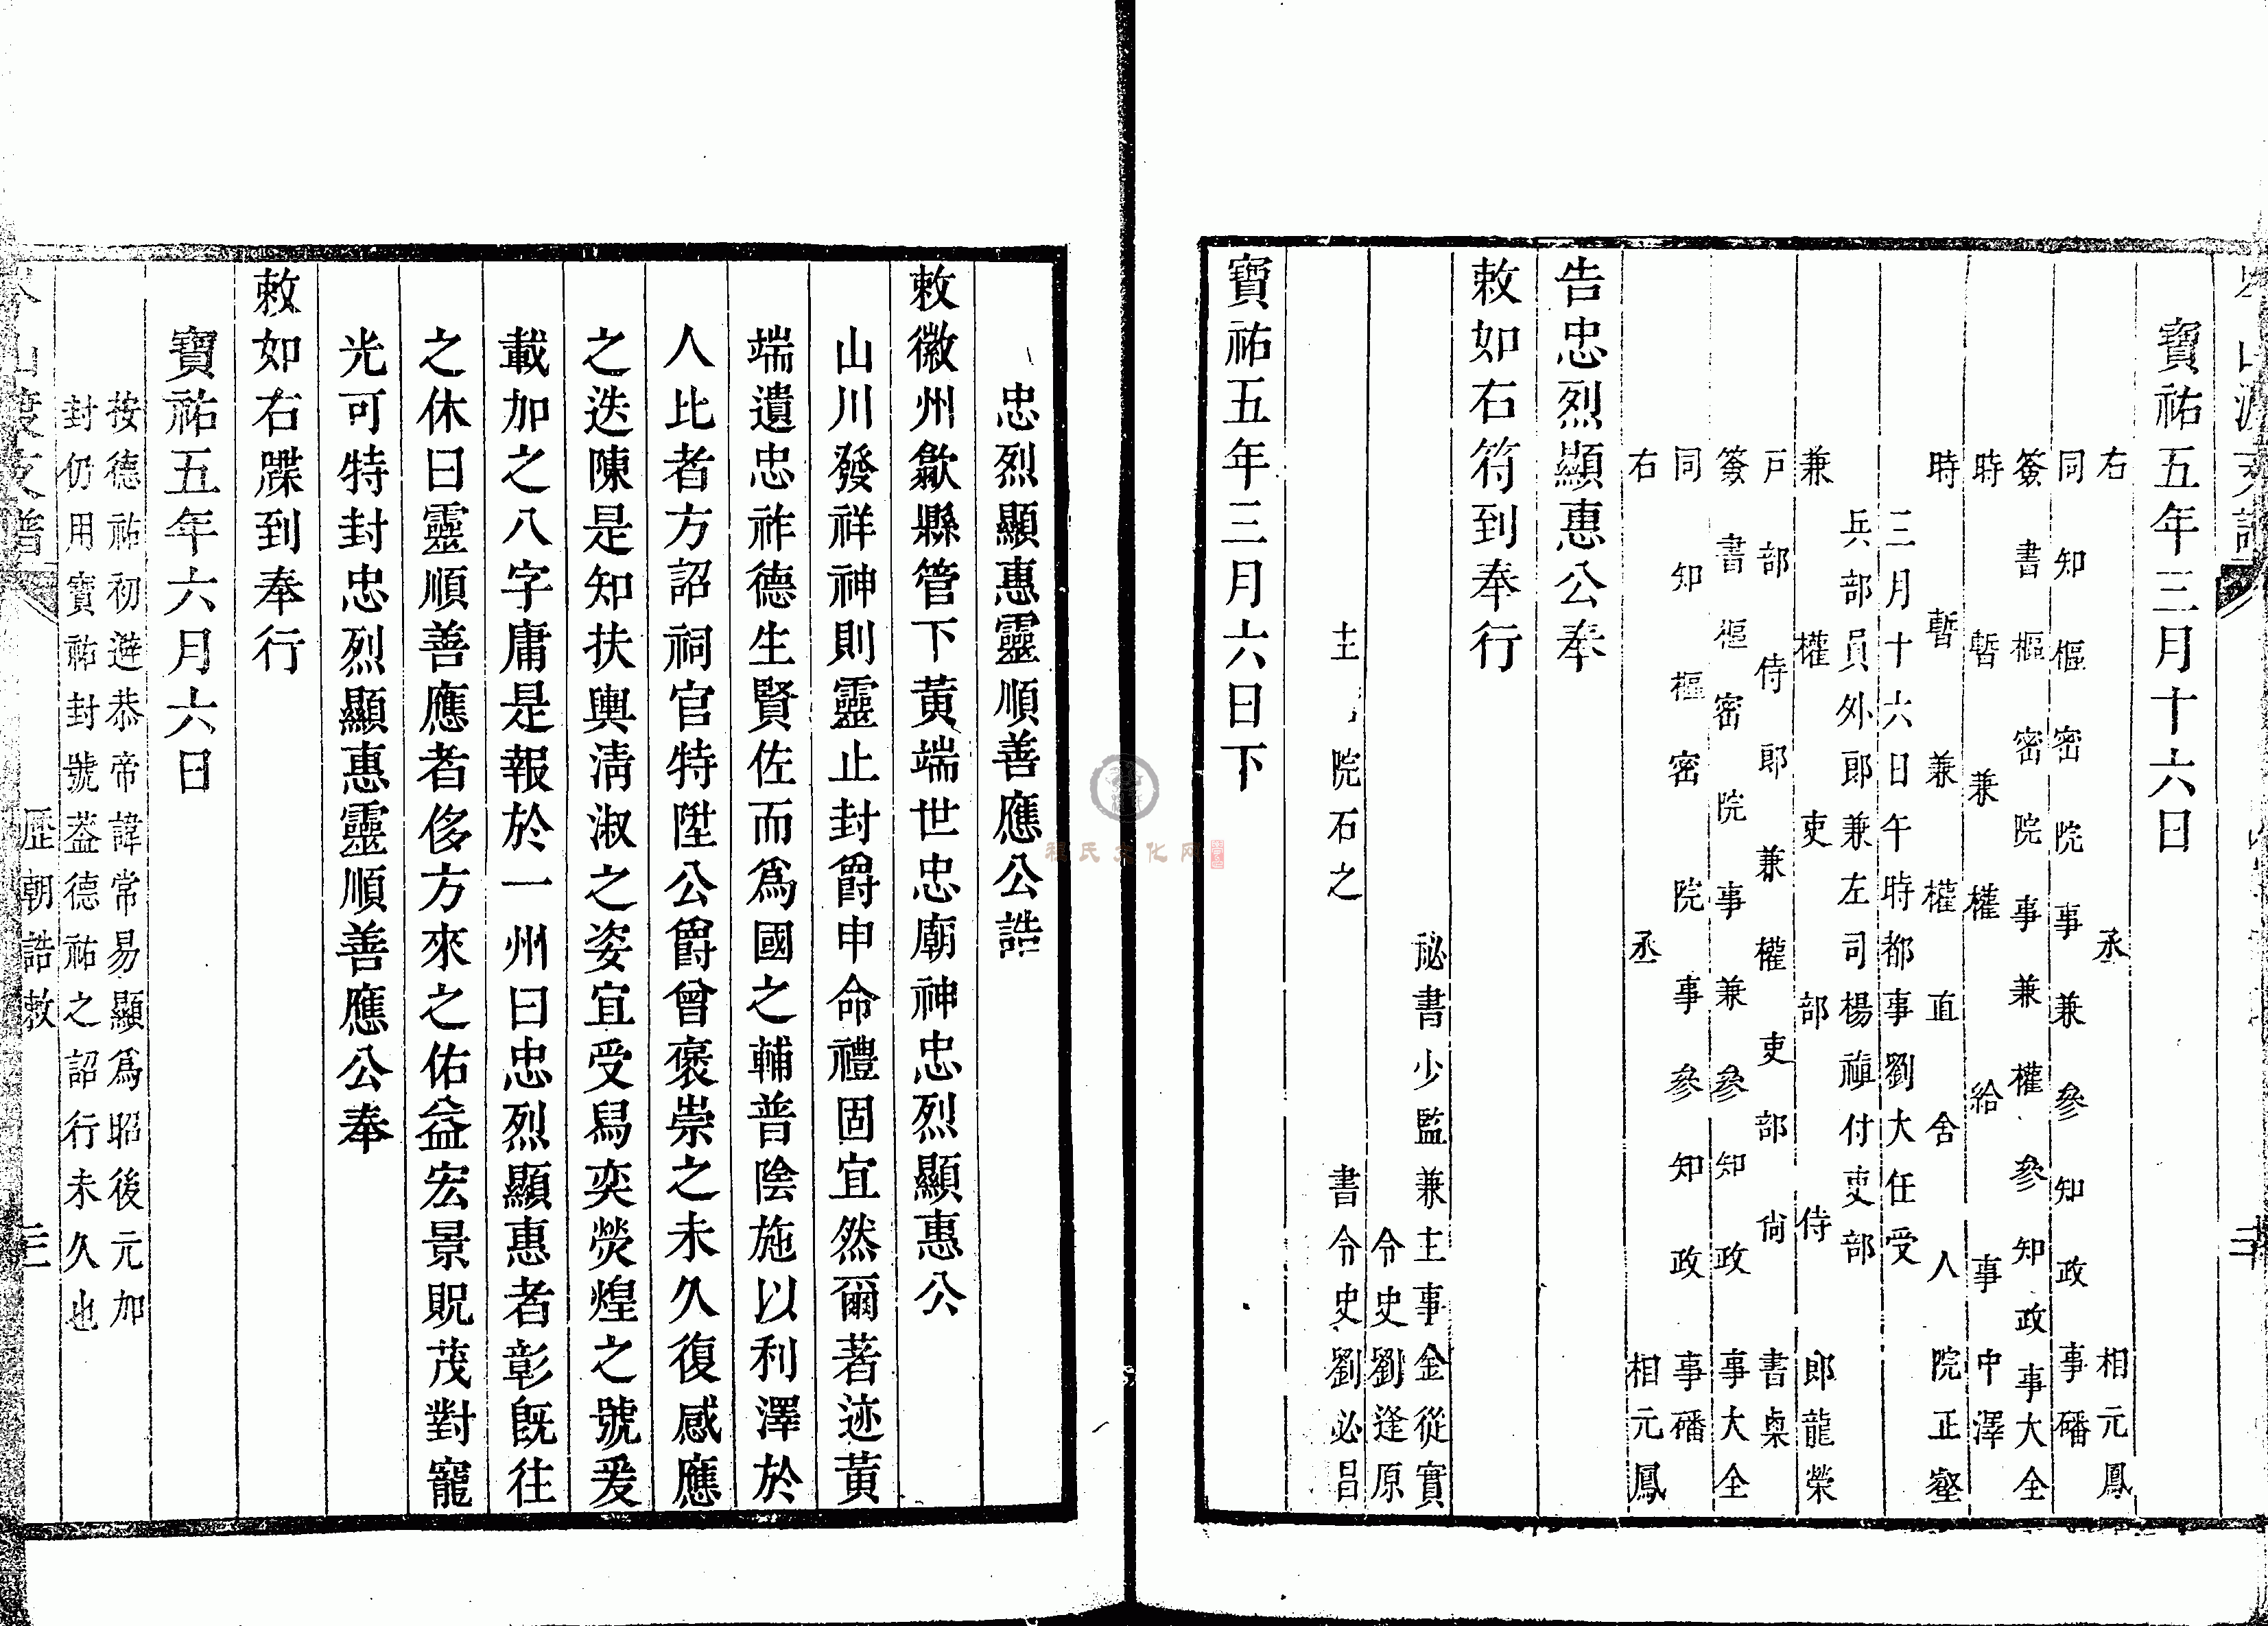 寶祐五年三月十六日
右丞相元鳳
同知樞密院事兼參知政事磻
簽書樞密院事兼權參知政事大全
時暫兼權給事中澤
時暫兼權直舍人院正壑
三月十六日午時都事劉大任受
兵部員外郎兼左司楊禃付吏部
兼權吏部侍郎龍榮
戸部侍郎兼權吏部尙書㮚
簽書樞密院事兼參知政事大全
同知樞密院事參知政事磻
右丞相元鳳
告忠烈顯惠公奉
敕如右符到奉行
祕書少監兼主事金從實
令史劉逢原
主院石之
書令史劉必昌
寶祐五年三月六日下
忠烈顯惠靈順善應公誥
敕徽州歙縣管下黃端世忠廟神忠烈顯惠公
山川發祥神則靈止封爵申命禮固宜然爾著迹黃
端遺忠祚德生賢佐而爲國之輔普陰施以利澤於
人比者方詔祠官特陞公爵曾褒崇之未久復感應
之迭陳是知扶輿淸淑之姿宜受舄奕熒煌之號爰
載加之八字庸是報於一州曰忠烈顯惠者彰旣往
之休曰靈順善應者侈方來之佑益宏景貺茂對寵
光可特封忠烈顯惠靈順善應公奉
敕如右牒到奉行
寶祐五年六月六日
按德祐初避恭帝諱常易顯爲昭後元加
封仍用寶祐封號葢德祐之詔行未久也
歷朝誥敕
三